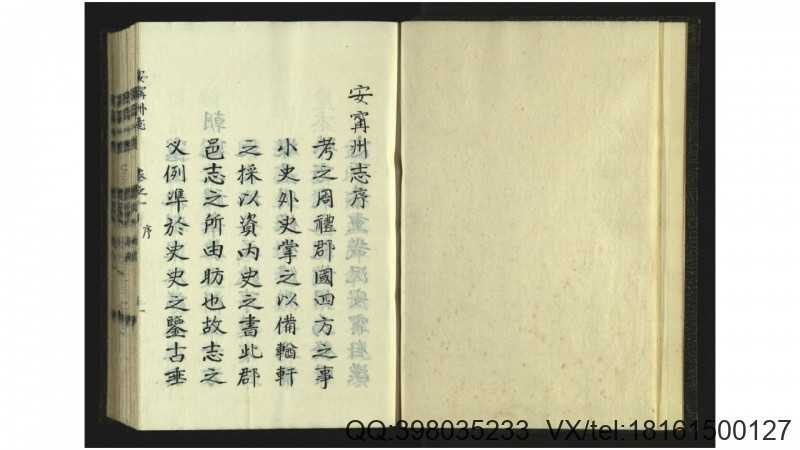 安甯州志序
考之周禮郡國四方之事
小史外史掌之以備輶軒
之採以資内史之書此郡
邑志之所由昉也故志之
义例準於史史之鑒古垂
安甯州志
卷之一
序
QQ:398035233 VX/tel:18161500127